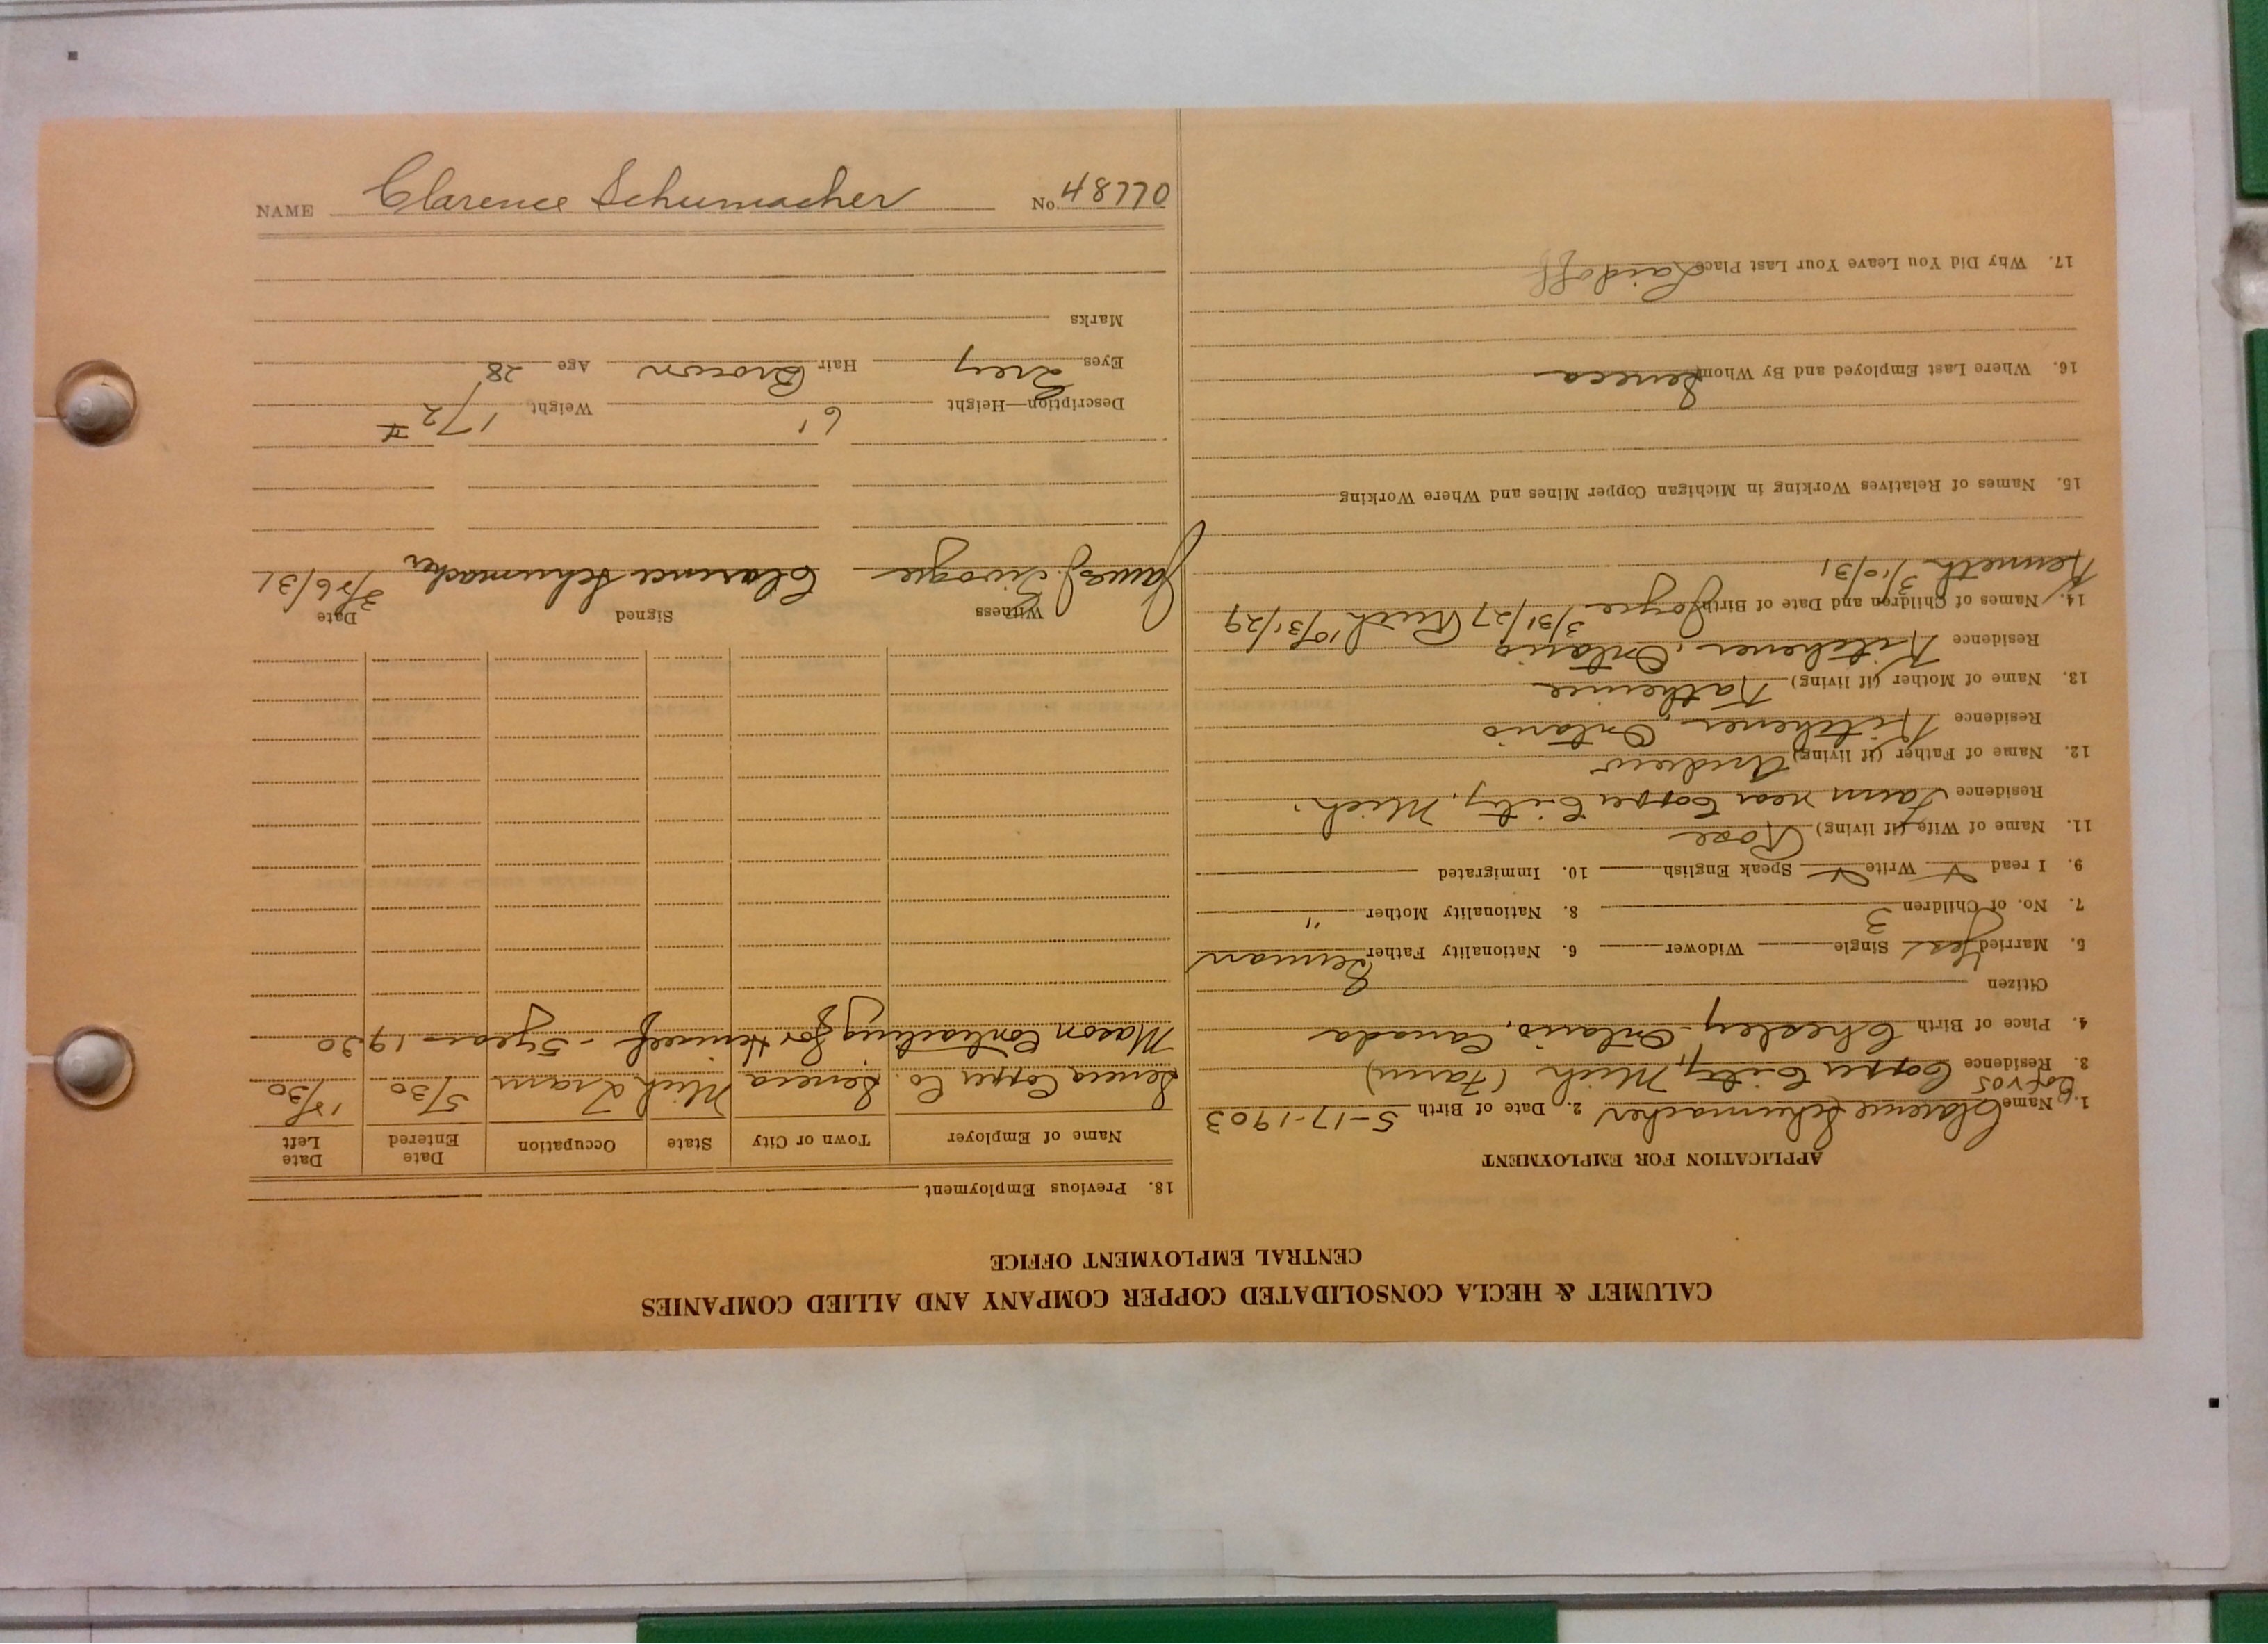 CALUMET & HECLA CONSOLIDATED COPPER COMPANY AND ALLIED COMPANIES
CENTRAL EMPLOYMENT OFFICE
APPLICATION FOR EMPLOYMENT
1. Name Clarence Schumacher 2. Date of Birth 5-17-1903
Box 205
3. Residence Copper City, Mich (Farm)
4. Place of Birth Chesley, Ontario, Canada
Citizen
5. Married Yes Single Widower 6. Nationality Father German
7. No. of Children 3 8. Nationality Mother "
9. I read ✓ Write ✓ Speak English 10. Immigrated
11. Name of Wife (if living) Rose
Residence Farm near Copper City, Mich.
12. Name of Father (if living) Andrew
Residence Kitchener, Ontario
13. Name of Mother (if living) Katherine
Residence Kitchener, Ontario
14. Names of Children and Date of Birth Joyce 3/31/27 Ruth 10/31/29
Kenneth 3/10/31
15. Names of Relatives Working in Michigan Copper Mines and Where Working
16. Where Last Employed and By Whom Seneca
17. Why Did You Leave Your Last Place Laid off
18. Previous Employment
Name of Employer Town or City State Occupation Date Entered Date Left
Seneca Copper Co. Seneca Mich Tram 5/30 12/30
Mason Contracting for - 5 years 1930
Witness Signed Date
James J. Clarence Schumacher 3/26/31
Description—Height 6' Weight 172 #
Eyes Grey Hair Brown Age 28
Marks
NAME Clarence Schumacher No. 48770